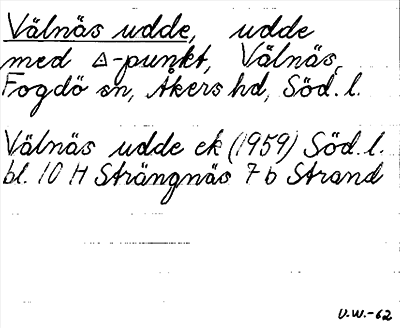 Välnäs udde, udde
med △-punkt, Välnäs,
Fogdö sn, Åkers hd, Söd. l.
Välnäs udde ek (1959) Söd. l.
bl. 10 H Strängnäs 7 b Strand
U.W.-62